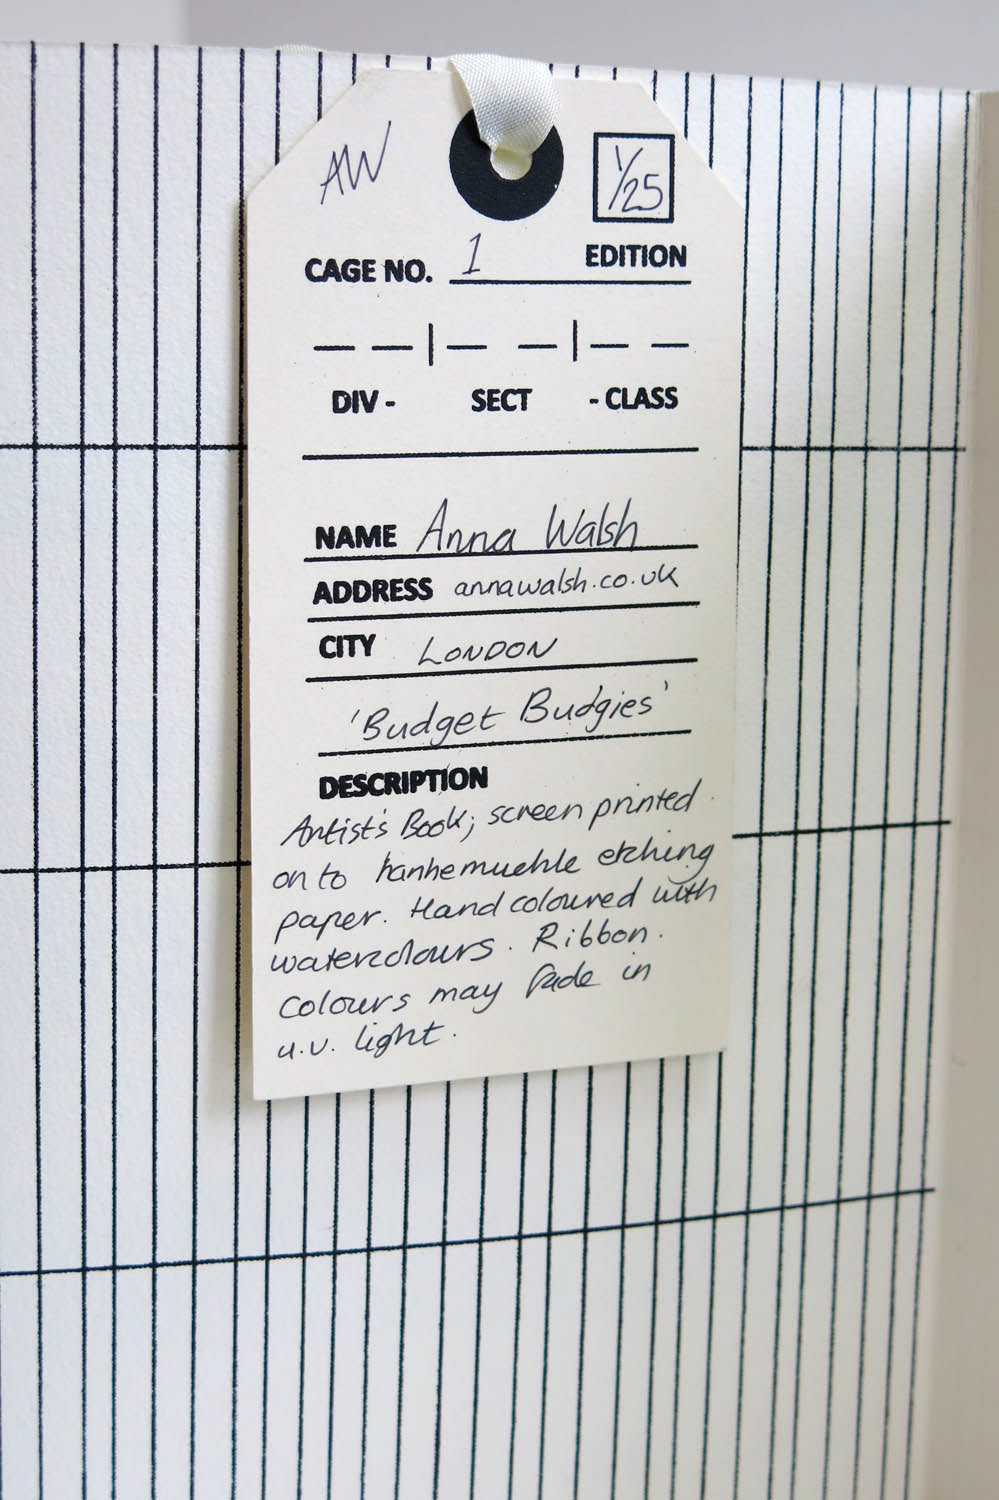 AW
1/25
CAGE NO. 1 EDITION
DIV - SECT - CLASS
NAME Anna Walsh
ADDRESS annawalsh.co.uk
CITY LONDON
'Budget Budgies'
DESCRIPTION
Artist's Book; screen printed
on to hanhemuehle etching
paper. Hand coloured with
watercolours. Ribbon.
Colours may fade in
u.v. light.